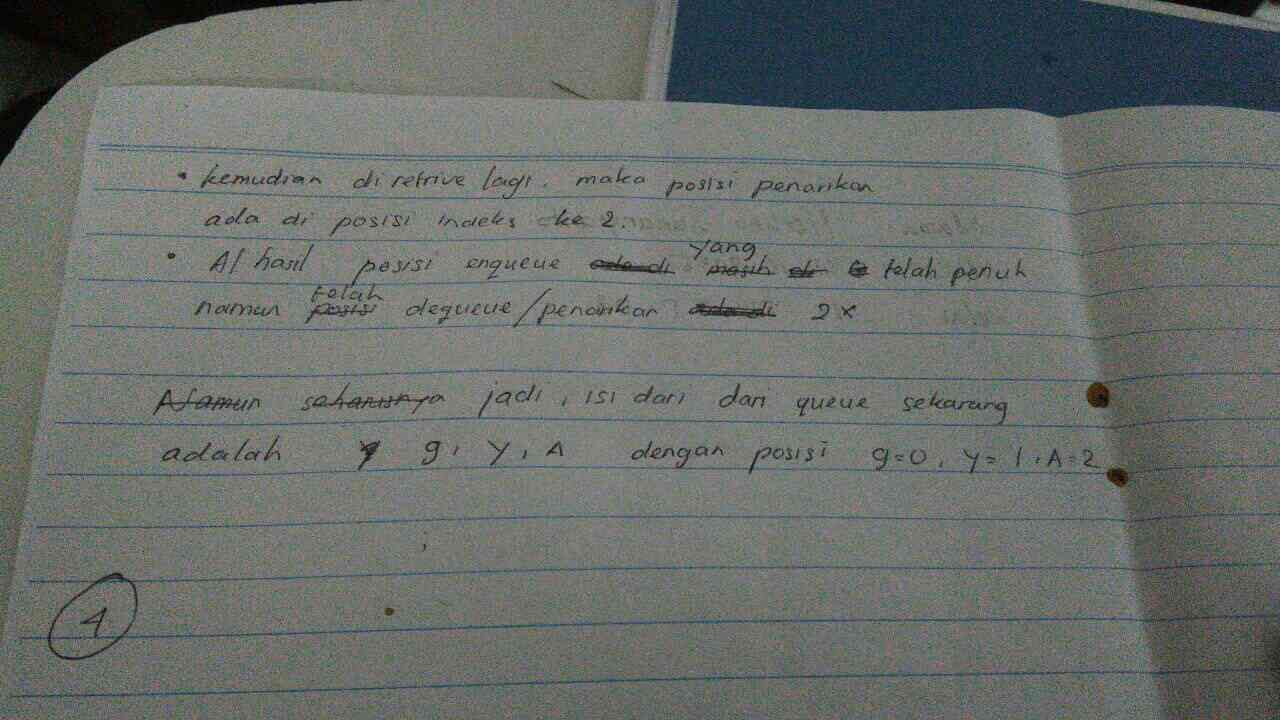 • kemudian di retrive lagi. maka posisi penarikan
ada di posisi indeks ke 2.
• Al hasil posisi enqueue yang telah penuh
namun telah dequeue/penarikan 2x
jadi, isi dari dari queue sekarang
adalah g, y, A dengan posisi g=0, y=1, A=2
4